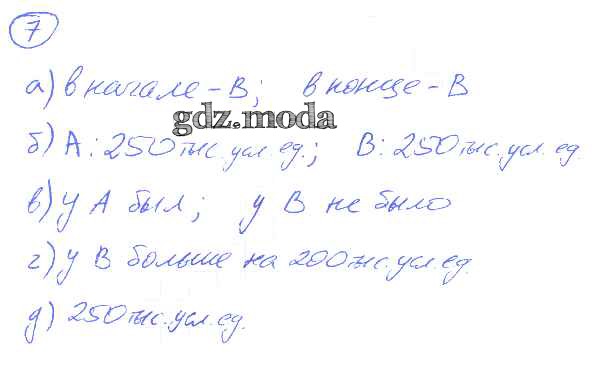 7
а) в начале - В; в конце - В
gdz.moda
б) А: 250 тыс. усл. ед.; В: 250 тыс. усл. ед.
в) у А был; у В не было
г) у В больше на 200 тыс. усл. ед.
д) 250 тыс. усл. ед.